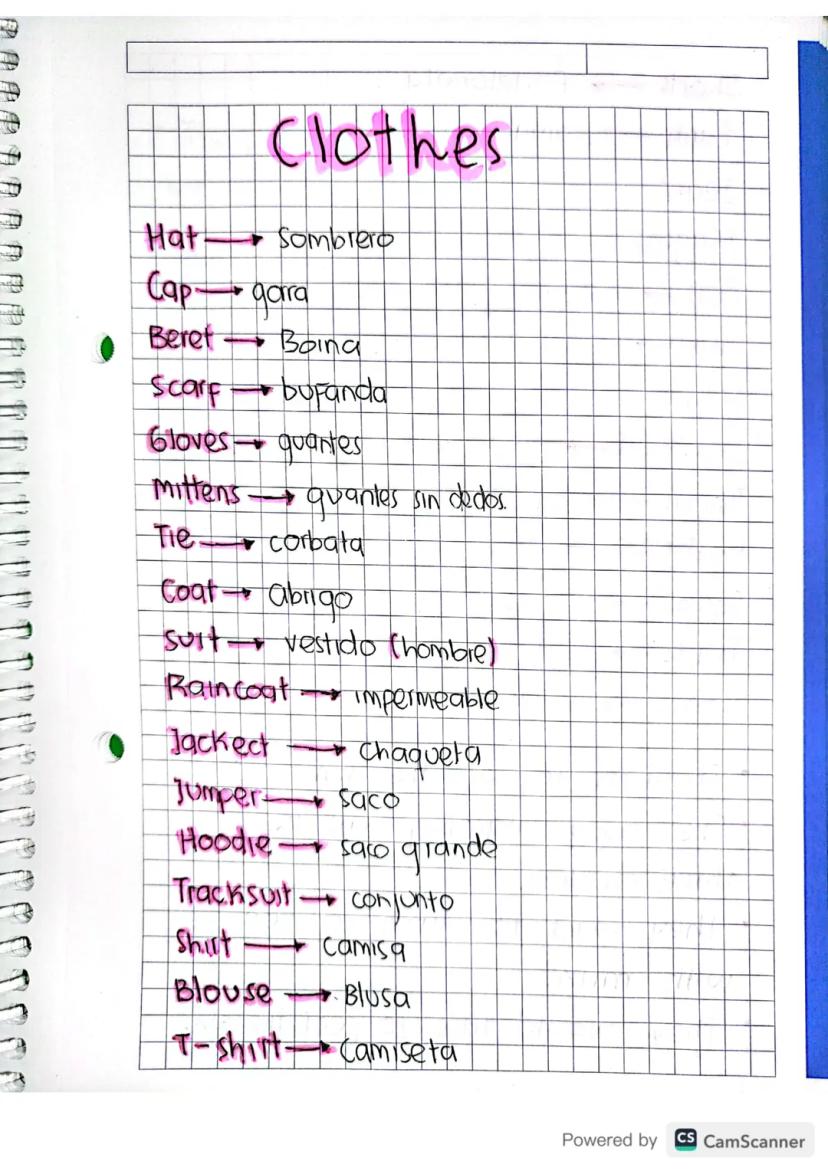 Clothes
Hat → sombrero
Cap → gorra
Beret → Boina
Scarf → bufanda
Gloves → guantes
Mittens → guantes sin dedos.
Tie → corbata
Coat → abrigo
Suit → vestido (hombre)
Raincoat → impermeable
Jackect → chaqueta
Jumper → saco
Hoodie → saco grande
Tracksuit → conjunto
Shirt → camisa
Blouse → Blusa
T-shirt → camiseta
Powered by CS CamScanner